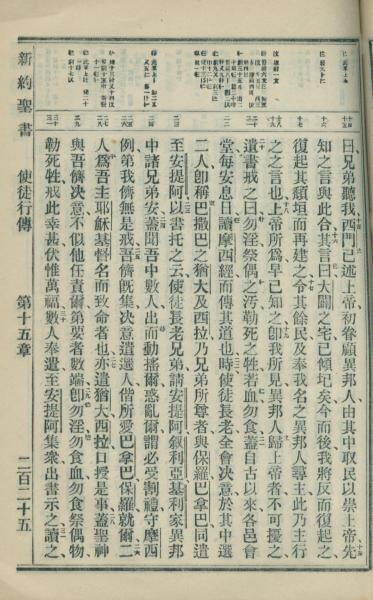 新約聖書 使徒行傳 第十五章 二百二十五
曰兄弟聽我西門已述上帝初眷顧異邦人由其中取民以崇上帝先
知之言與此合其言曰大闢之宅已傾圮矣今而後我將反而復起之
復起其頹垣而再建之令其餘民及奉我名之異邦人尋主此乃主行
之之言也上帝所爲早已知之卽我所見異邦人歸上帝者不可擾之
遺書戒之曰勿淫祭偶之汚勒死之牲若血勿食蓋自古以來各邑會
堂每安息日讀摩西經而傳其道也時使徒長老全會决意於其中選
二人卽稱巴撒巴之猶大及西拉乃兄弟所尊者與保羅巴拿巴同遣
至安提阿以書托之云使徒長老兄弟請安提阿叙利亞基利家異邦
中諸兄弟安蓋聞吾中數人出而動播爾惑亂爾謂必受割禮守摩西
例第我儕無是戒吾儕旣集决意遣選人偕所愛巴拿巴保羅就爾二
人爲吾主耶穌基督名而致命者也亦遣猶大西拉口授是事蓋聖神
與吾儕决意不以他任責爾第要者數端卽勿淫勿食血勿食祭偶物
勒死牲戒此幸甚伏惟萬福數人奉遣至安提阿集衆出書示之讀之